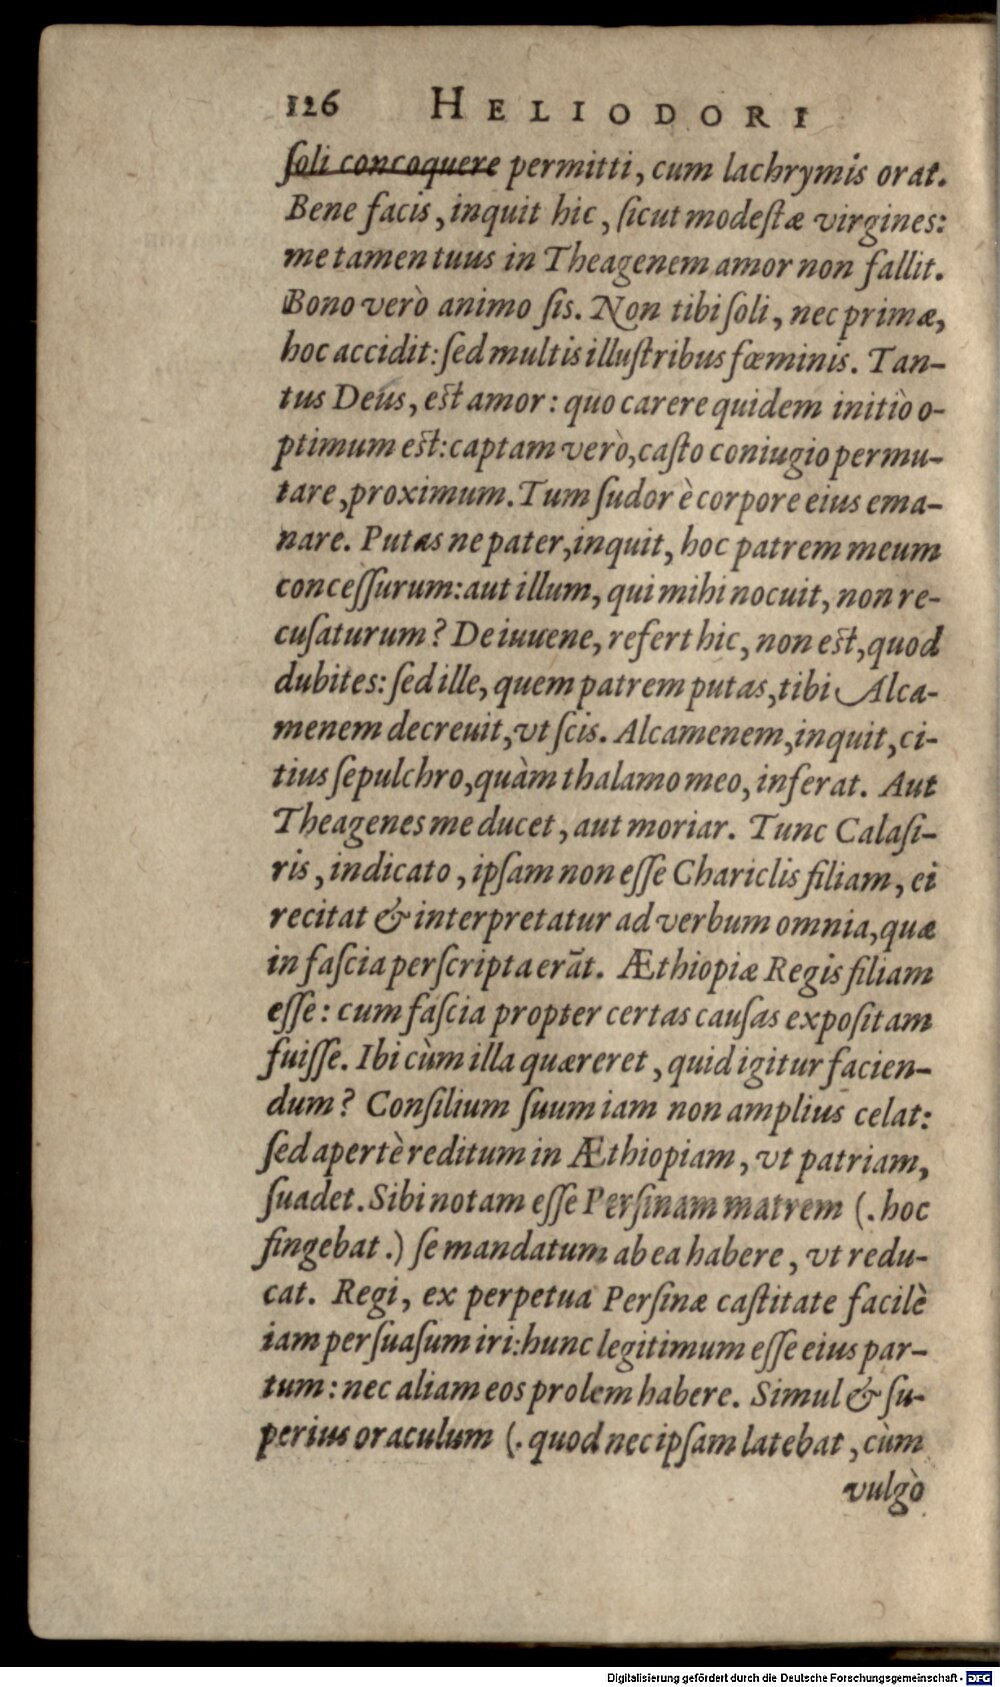 126 HELIODORI
ſoli concoquere permitti, cum lachrymis orat.
Bene facis, inquit hic, ſicut modeſtæ virgines:
me tamen tuus in Theagenem amor non fallit.
Bono verò animo ſis. Non tibi ſoli, nec primæ,
hoc accidit: ſed multis illuſtribus fœminis. Tan-
tus Deus, eſt amor: quo carere quidem initiò o-
ptimum eſt: captam verò, caſto coniugio permu-
tare, proximum. Tum ſudor è corpore eius ema-
nare. Putas ne pater, inquit, hoc patrem meum
conceſſurum: aut illum, qui mihi nocuit, non re-
cuſaturum? De iuuene, refert hic, non eſt, quod
dubites: ſed ille, quem patrem putas, tibi Alca-
menem decreuit, vt ſcis. Alcamenem, inquit, ci-
tius ſepulchro, quàm thalamo meo, inferat. Aut
Theagenes me ducet, aut moriar. Tunc Calaſi-
ris, indicato, ipſam non eſſe Chariclis filiam, ei
recitat & interpretatur ad verbum omnia, quæ
in faſcia perſcripta erāt. Æthiopiæ Regis filiam
eſſe: cum faſcia propter certas cauſas expoſitam
fuiſſe. Ibi cùm illa quæreret, quid igitur facien-
dum? Conſilium ſuum iam non amplius celat:
ſed apertè reditum in Æthiopiam, vt patriam,
ſuadet. Sibi notam eſſe Perſinam matrem (. hoc
fingebat .) ſe mandatum ab ea habere, vt redu-
cat. Regi, ex perpetua Perſinæ caſtitate facilè
iam perſuaſum iri: hunc legitimum eſſe eius par-
tum: nec aliam eos prolem habere. Simul & ſu-
perius oraculum (. quod nec ipſam latebat, cùm
vulgò
Digitalisierung gefördert durch die Deutsche Forschungsgemeinschaft - DFG